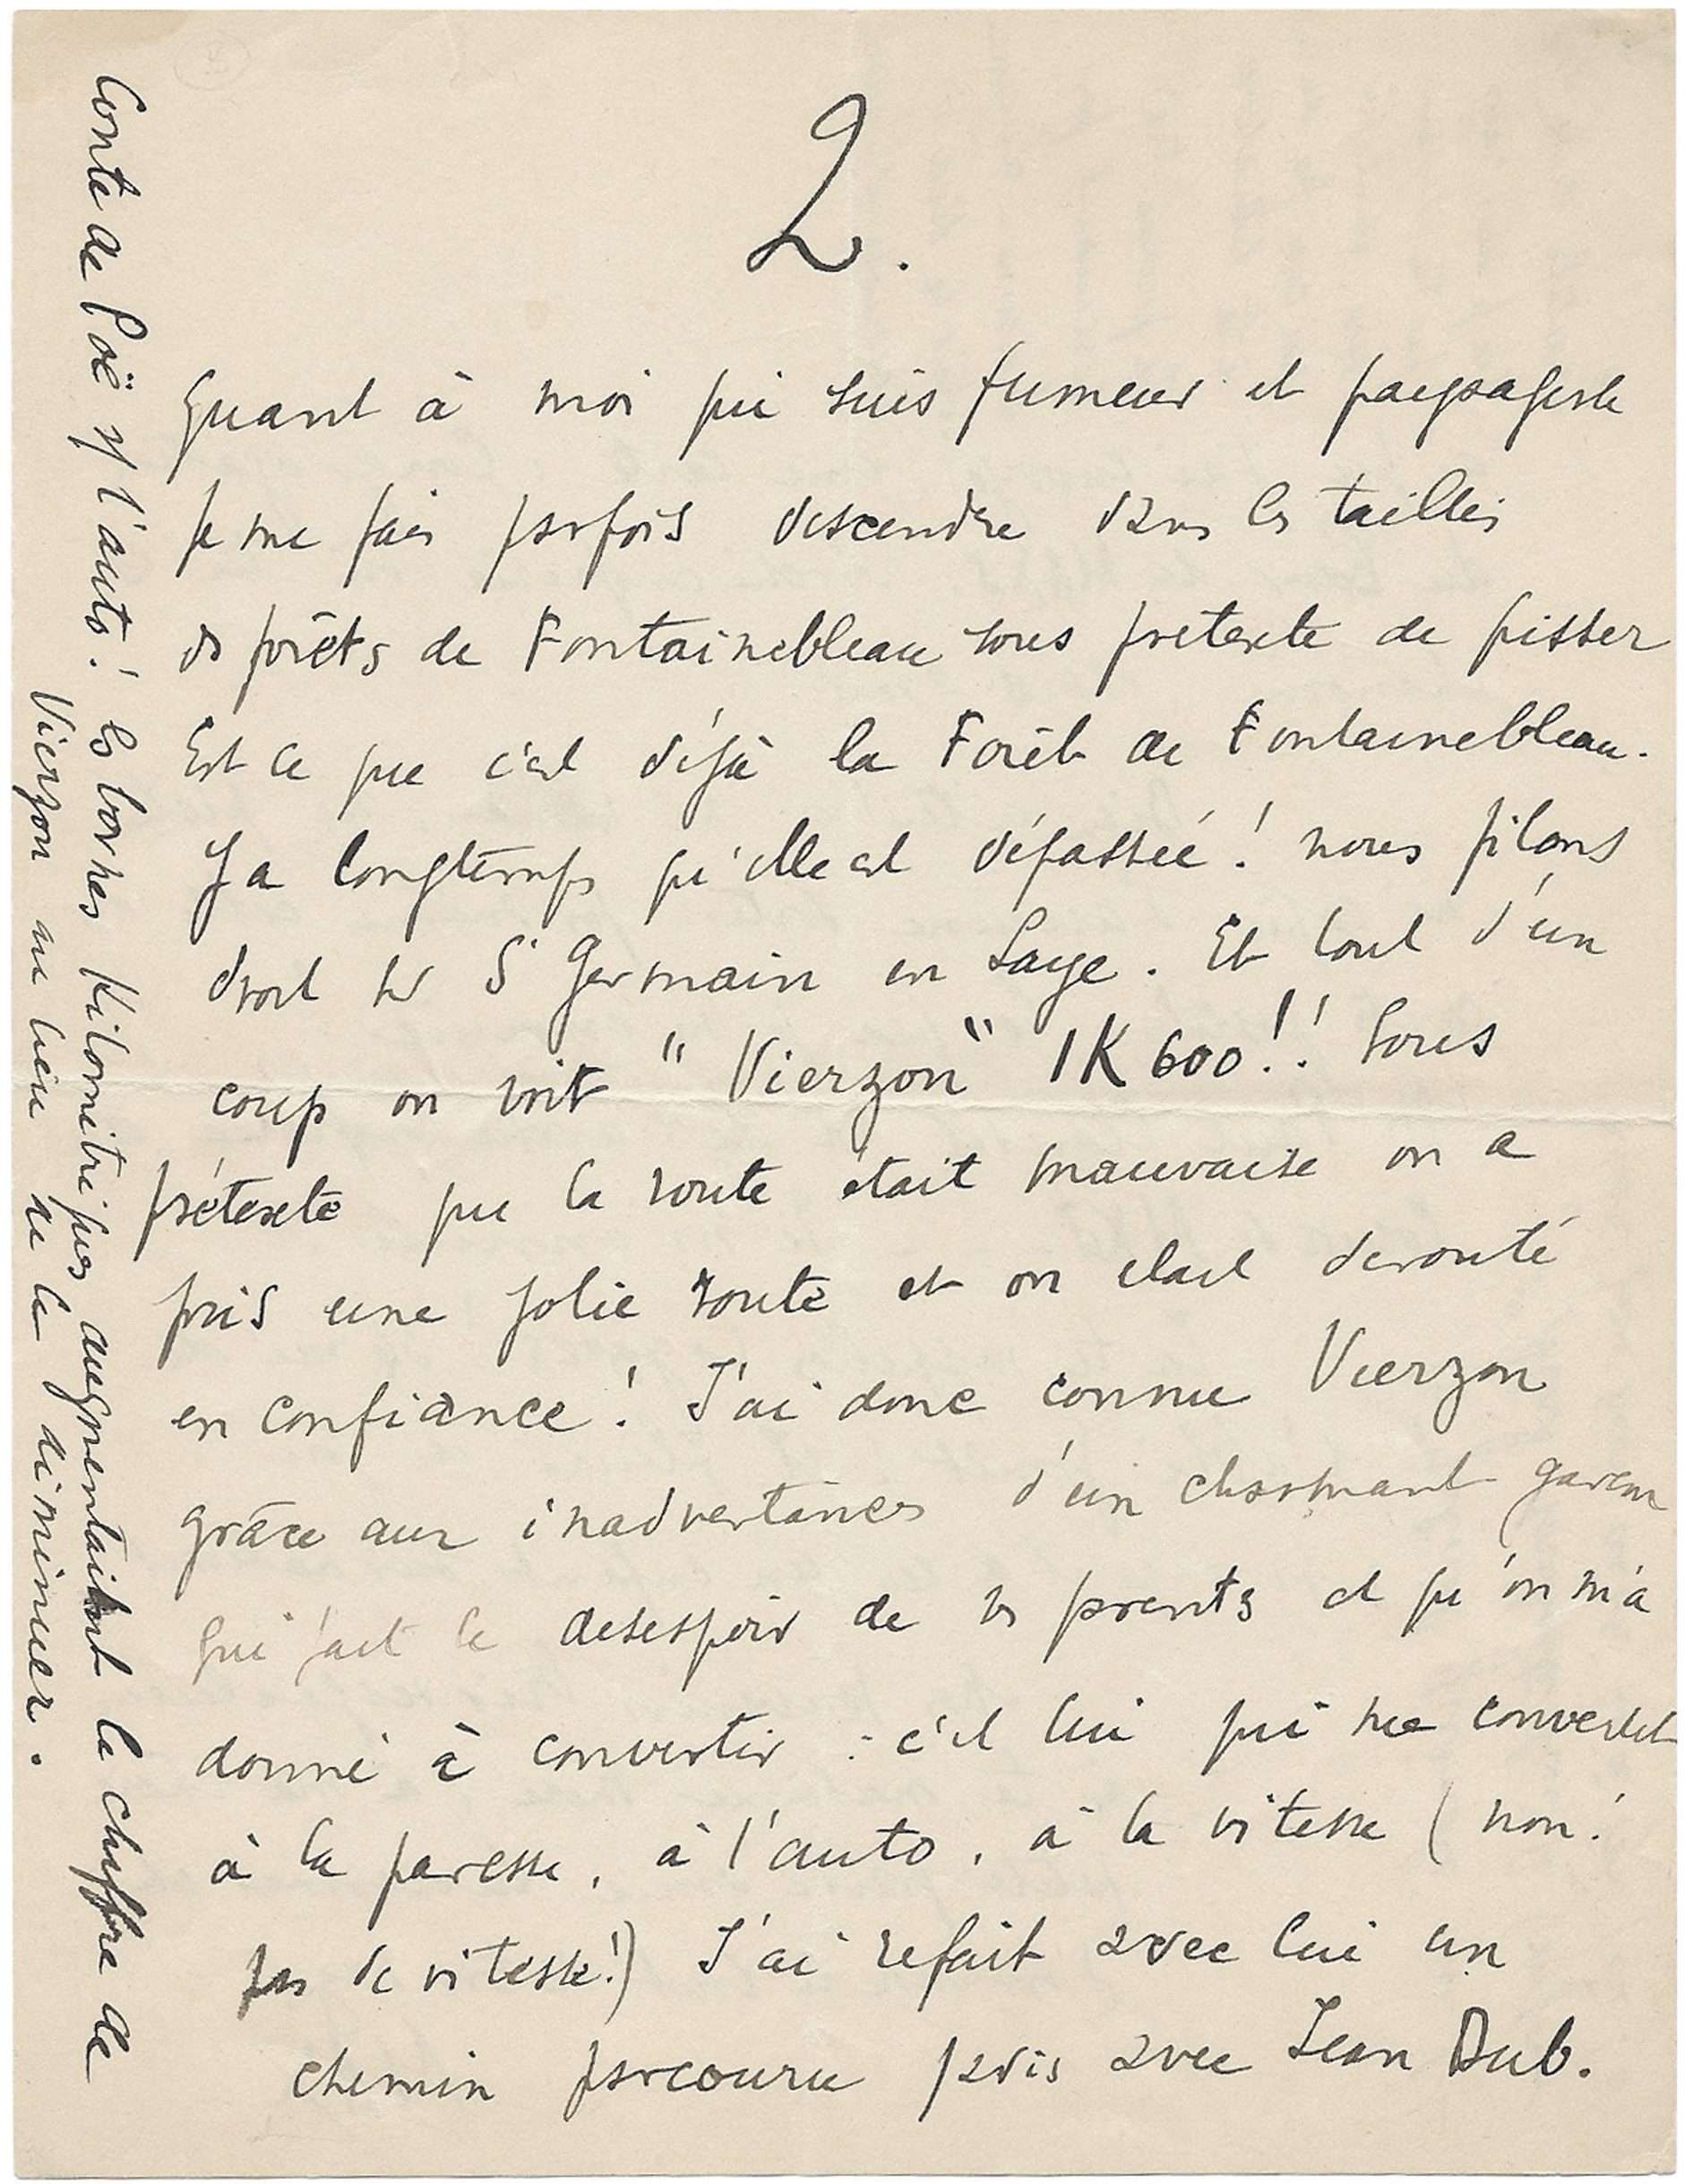 2.
Quant à moi qui suis fumeur et paysagiste
je me fais parfois descendre dans les taillis
des forêts de Fontainebleau sous pretexte de pisser
Est ce que c'est déjà la Forêt de Fontainebleau.
Y a longtemps qu'elle est dépassée ! nous filons
droit sur St Germain en Laye. Et tout d'un
coup on voit " Vierzon " 1K600 ! ! Sous
prétexte que la route était mauvaise on a
pris une jolie route et on était derouté
en confiance ! J'ai donc connu Vierzon
grâce aux inadvertances d'un charmant garçon
qui fait le desespoir de ses parents et qu'on m'a
donné à convertir : c'est lui qui me convertit
à la paresse, à l'auto, à la vitesse ( non !
pas de vitesse !) J'ai refait avec lui un
chemin parcouru jadis avec Jean Dub.
Conte de Poë sur l'auto ! les bornes kilométriques augmentaient le chiffre de
Vierzon au lieu de le diminuer.